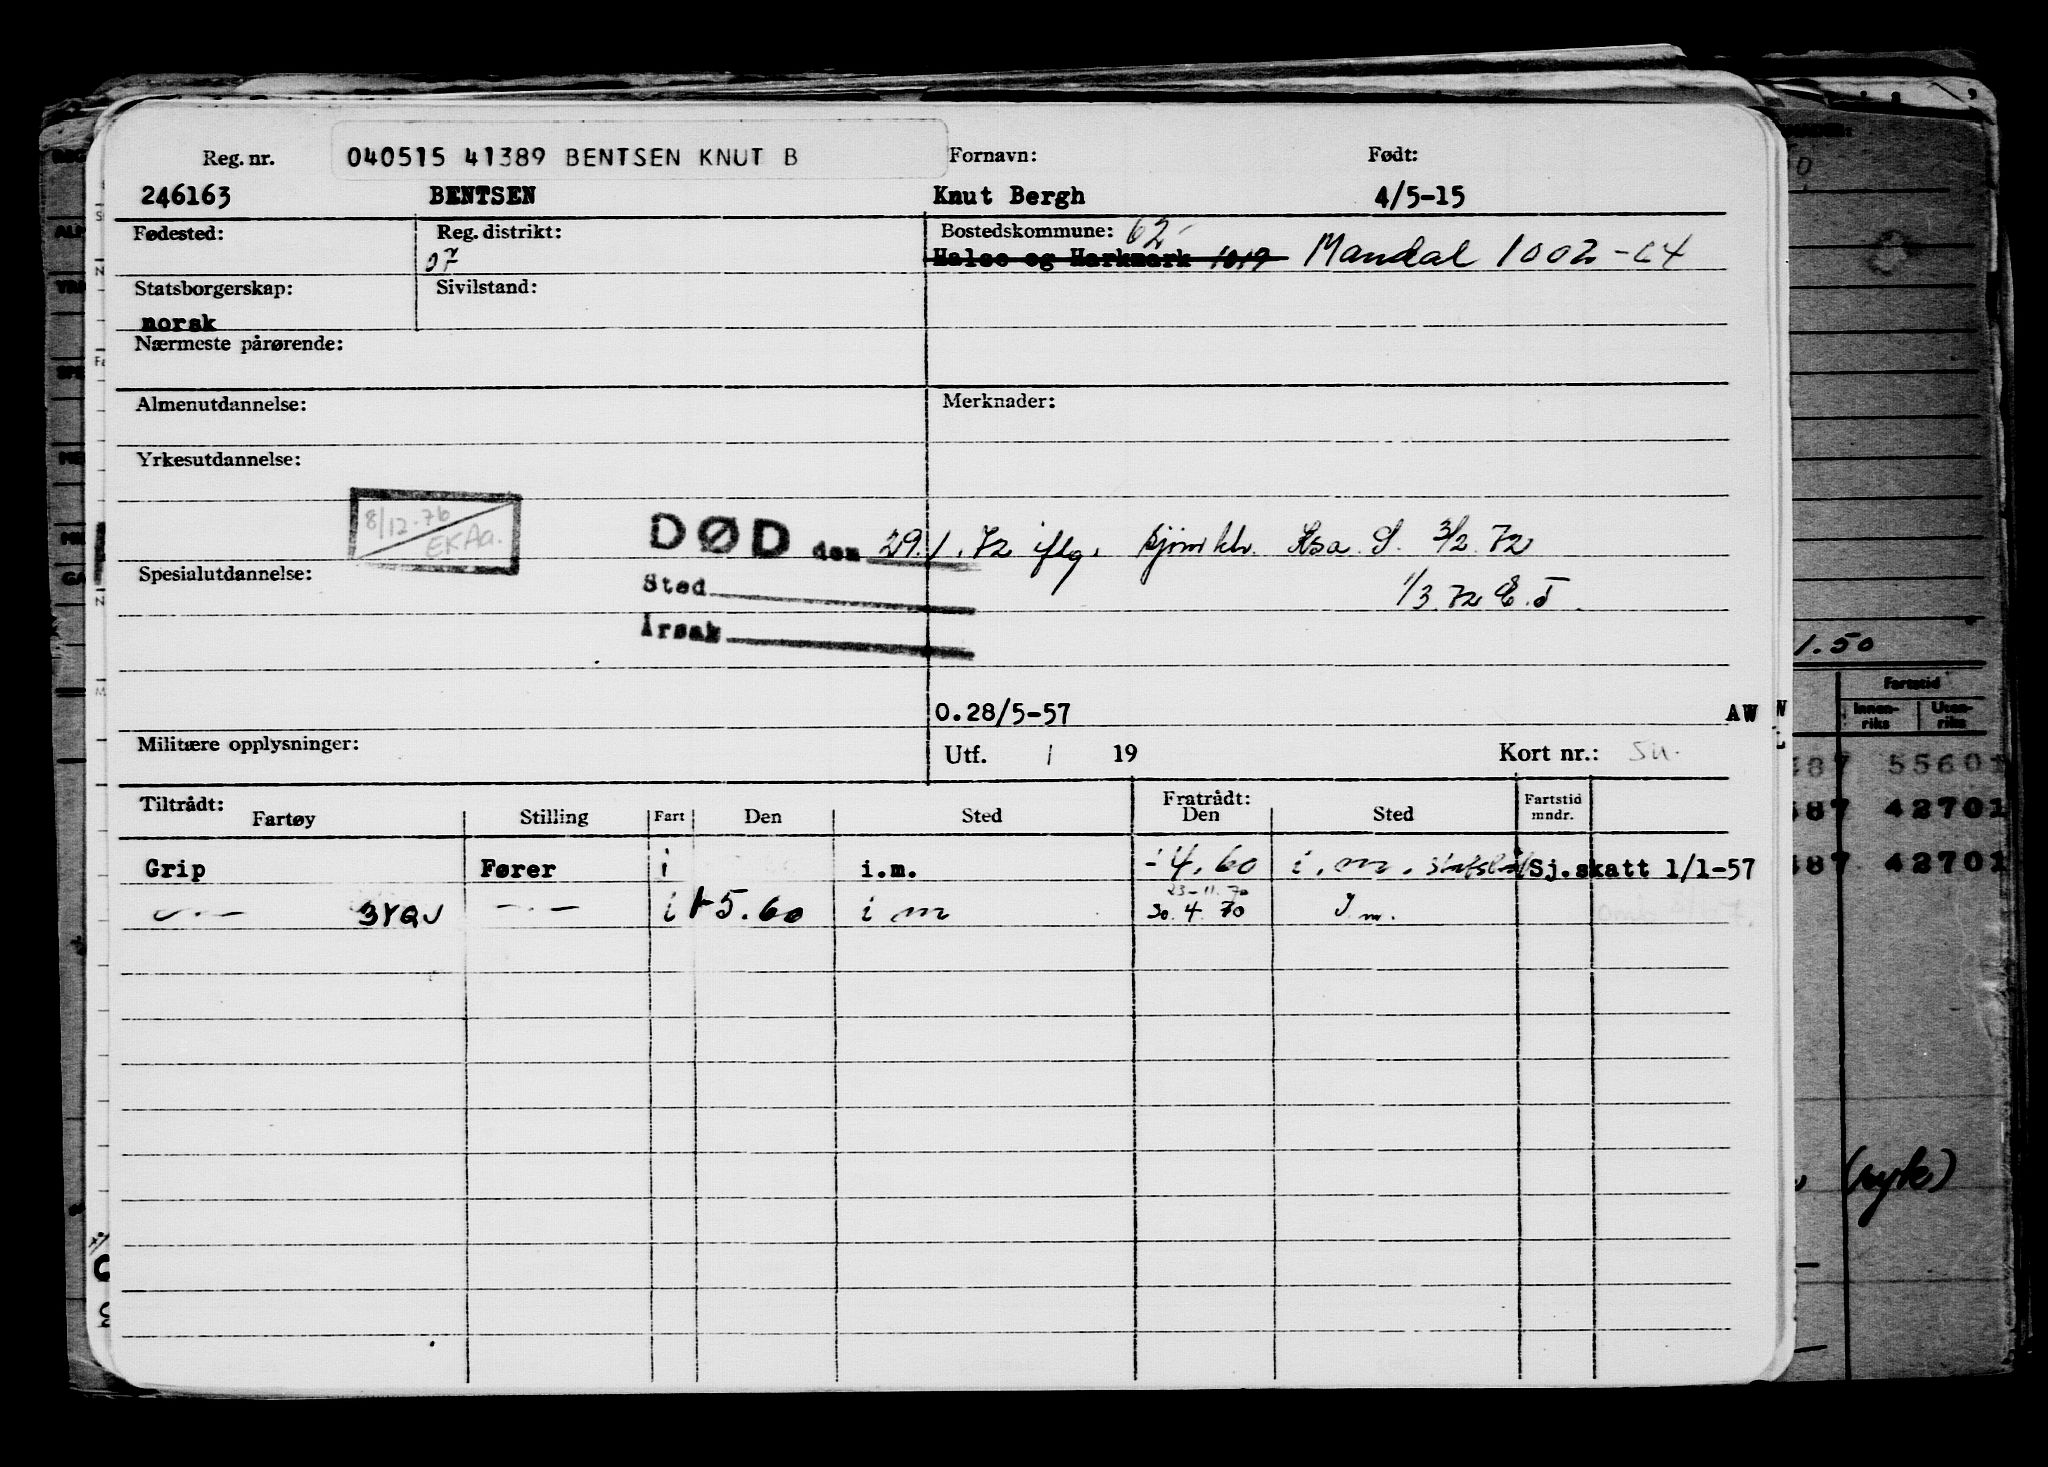 040515 41389 BENTSEN KNUT B
Reg. nr. Fornavn: Født:
246163 BENTSEN Knut Bergh 4/5-15
Fødested: Reg. distrikt: Bostedskommune: 62
07 Halse og Harkmark 1019 Mandal 1002-64
Statsborgerskap: Sivilstand:
norsk
Nærmeste pårørende:
Almenutdannelse: Merknader:
Yrkesutdannelse:
8/12-76
EKAa.
DØD den 29.1.72 iflg. Ksa. S. 3/2.72
Spesialutdannelse: Sted 1/3.72 E.T.
Årsak
0.28/5-57 AW
Militære opplysninger: Utf. / 19 Kort nr.:
Tiltrådt: Fratrådt:
Fartøy Stilling Fart Den Sted Den Sted Fartstid mndr.
Grip Fører i i.m. -4.60 i.m. Sj.skatt 1/1-57
23-11.70
—"— 3YQJ —"— i 1-5.60 i m 30.4.70 I m.
1.50
Fartstid
Innen-riks Uten-riks
487 55601
487 42701
487 42701
(syk)